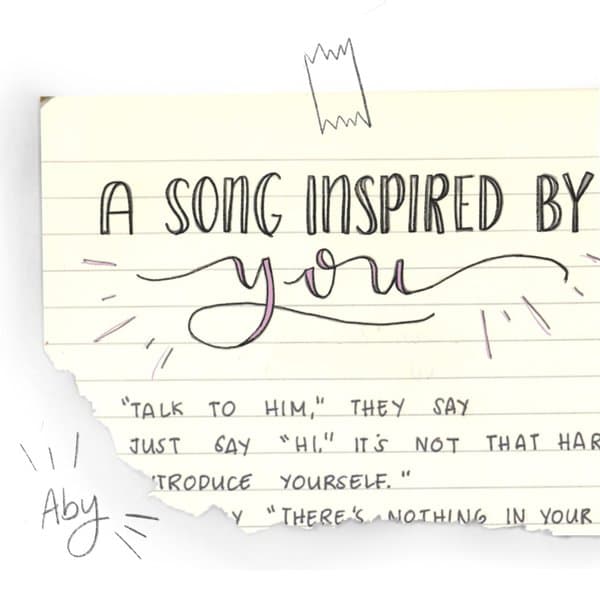 A SONG INSPIRED BY
you
"TALK TO HIM," THEY SAY
JUST SAY "HI." IT'S NOT THAT HAR
TRODUCE YOURSELF."
Y "THERE'S NOTHING IN YOUR
Aby